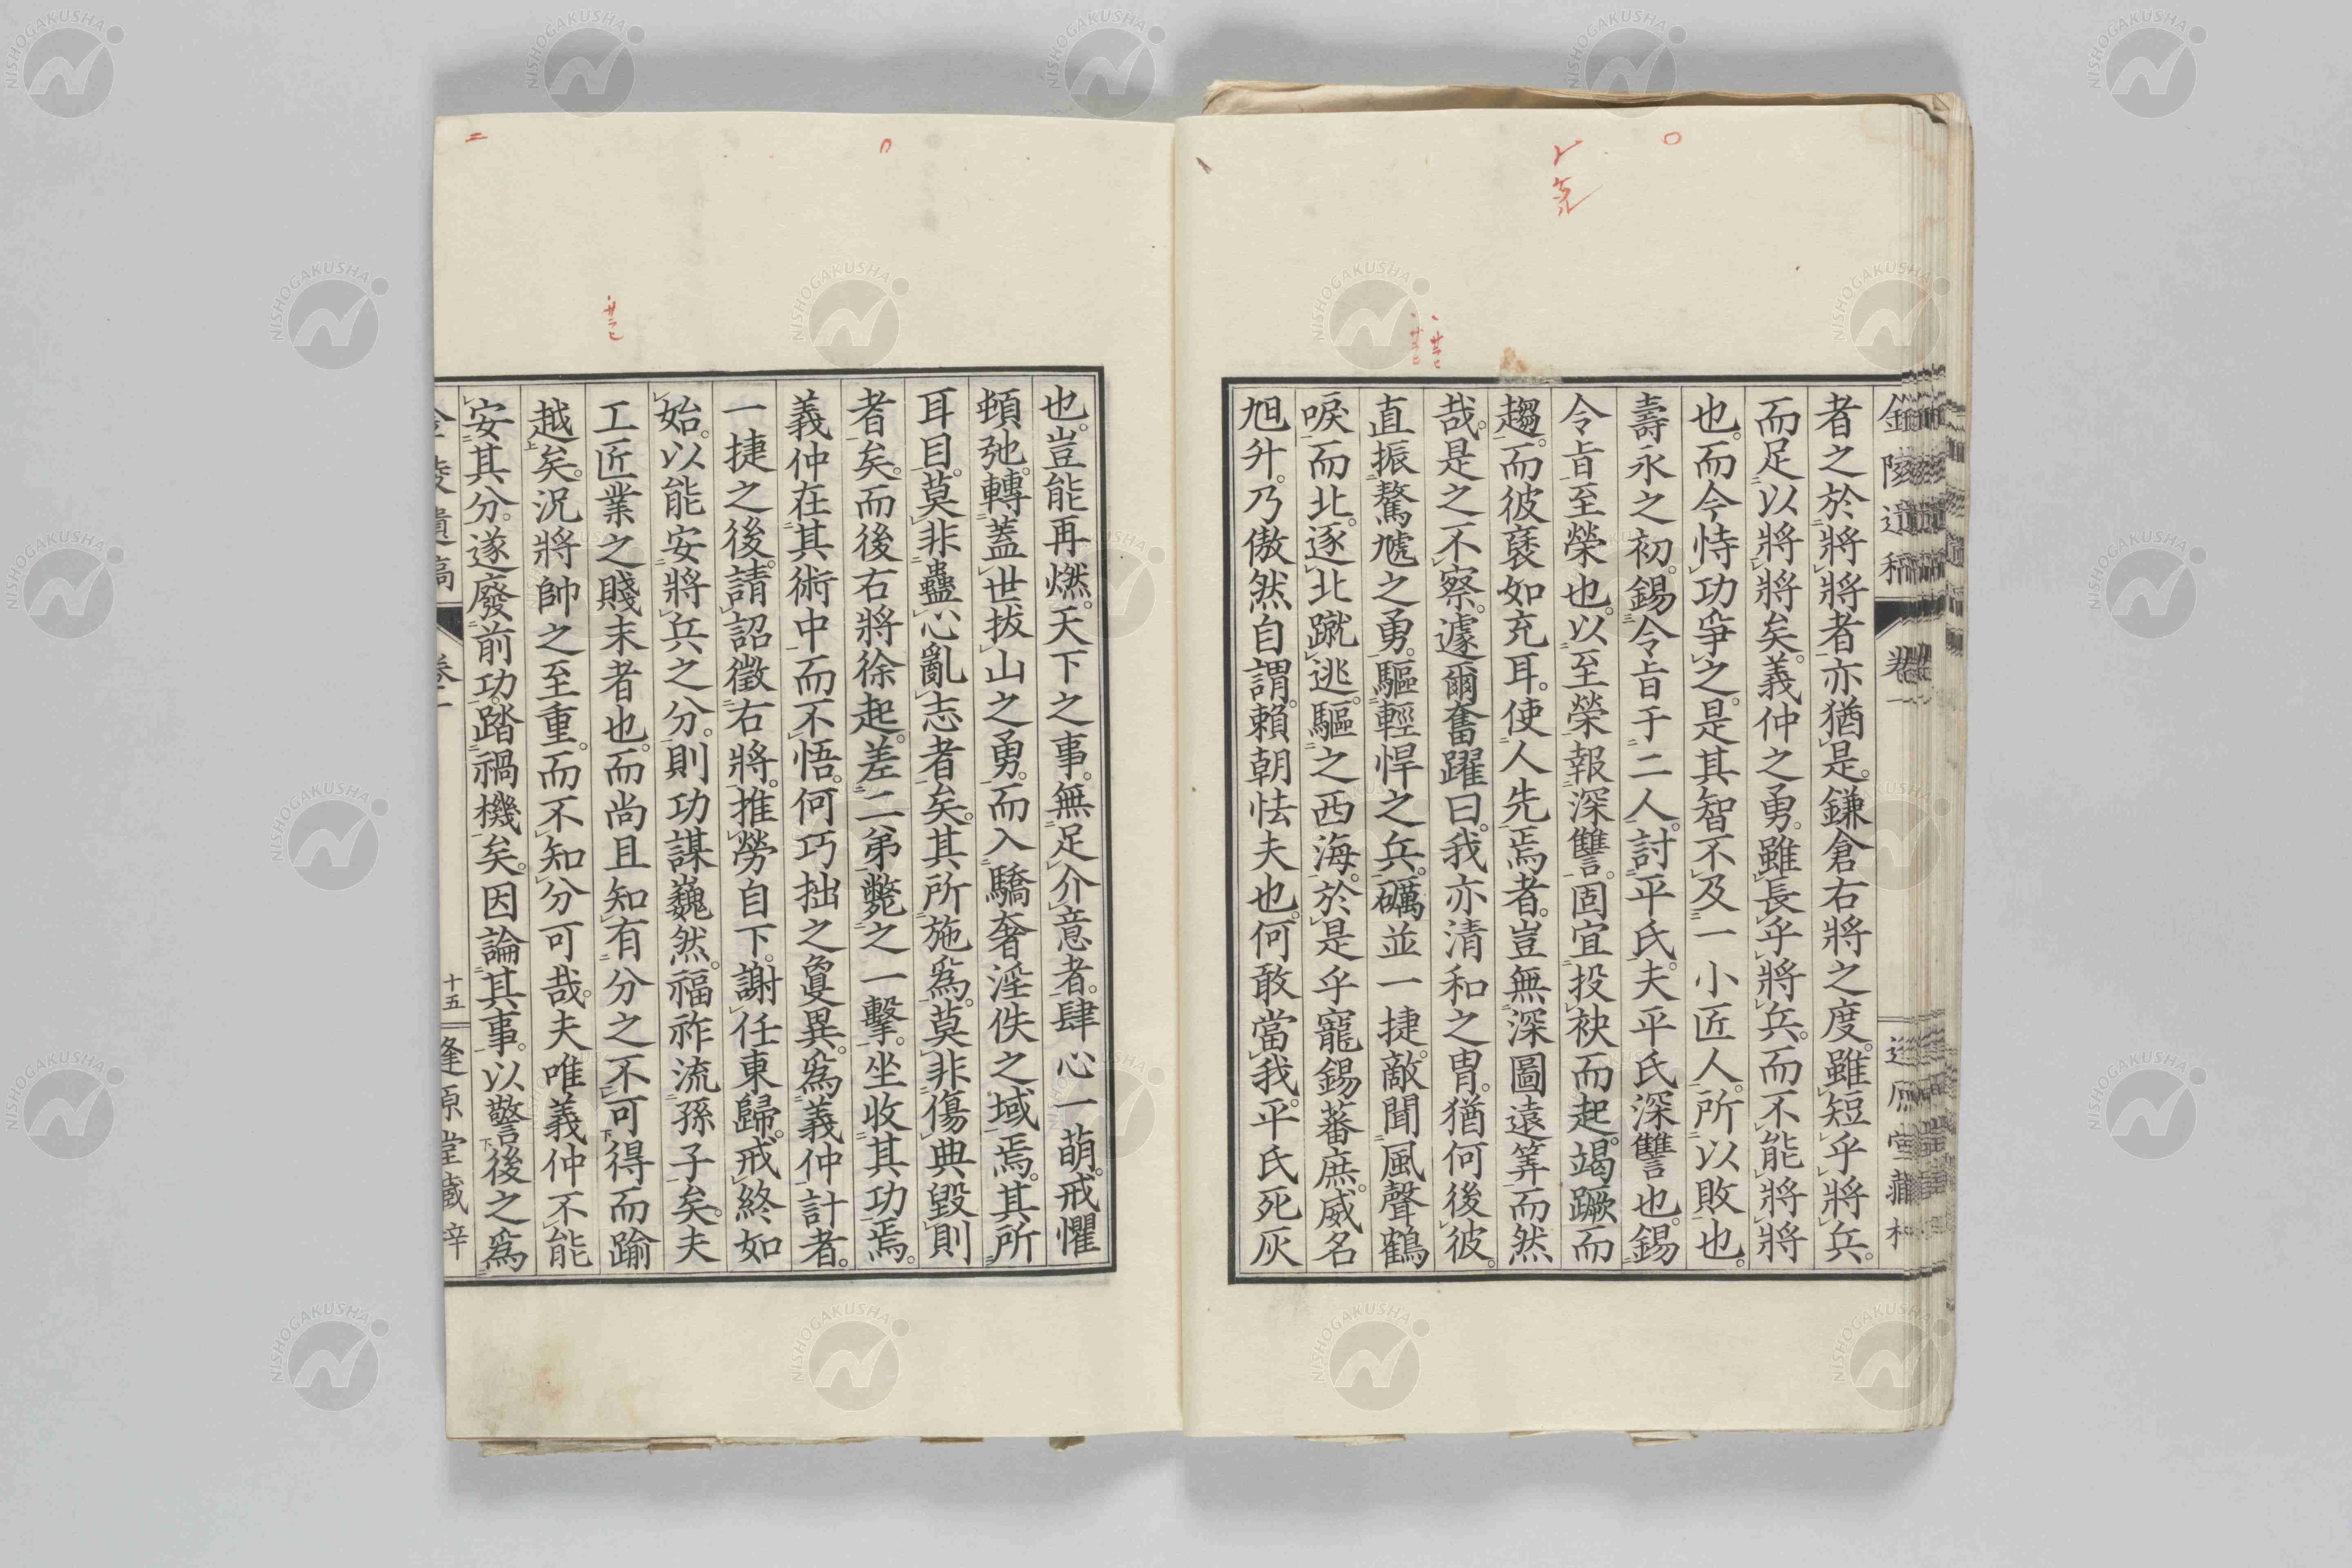 者之於將將者亦猶是。鎌倉右將之度。雖短乎將兵。
而足以將將矣。義仲之勇。雖長乎將兵。而不能將將
也。而今恃功爭之。是其智不及一小匠人。所以敗也。
壽永之初。錫令旨于二人。討平氏。夫平氏深讐也。錫
令旨至榮也。以至榮報深讐。固宜投袂而起。竭蹶而
趨。而彼褎如充耳。使人先焉者。豈無深圖遠筭而然
哉。是之不察。遽爾奮躍曰。我亦清和之胄。猶何後彼。
直振驁虓之勇。驅輕悍之兵。礪並一捷。敵聞風聲鶴
唳而北。逐北蹴逃。驅之西海。於是乎寵錫蕃庶。威名
旭升。乃傲然自謂。賴朝怯夫也。何敢當我。平氏死灰
也。豈能再燃。天下之事。無足介意者。肆心一萌。戒懼
頓弛。轉蓋世拔山之勇。而入驕奢淫佚之域焉。其所
耳目。莫非蠱心亂志者矣。其所施爲。莫非傷典毀則
者矣。而後右將徐起。差二弟斃之一擊。坐收其功焉。
義仲在其術中而不悟。何巧拙之敻異。爲義仲計者。
一捷之後。請詔徵右將。推勞自下。謝任東歸。戒終如
始。以能安將兵之分。則功謀巍然。福祚流孫子矣。夫
工匠業之賤末者也。而尚且知有分之不可得而踰
越矣。況將帥之至重。而不知分可哉。夫唯義仲不能
安其分。遂廢前功。踏禍機矣。因論其事。以警後之爲
十五
NISHOGAKUSHA